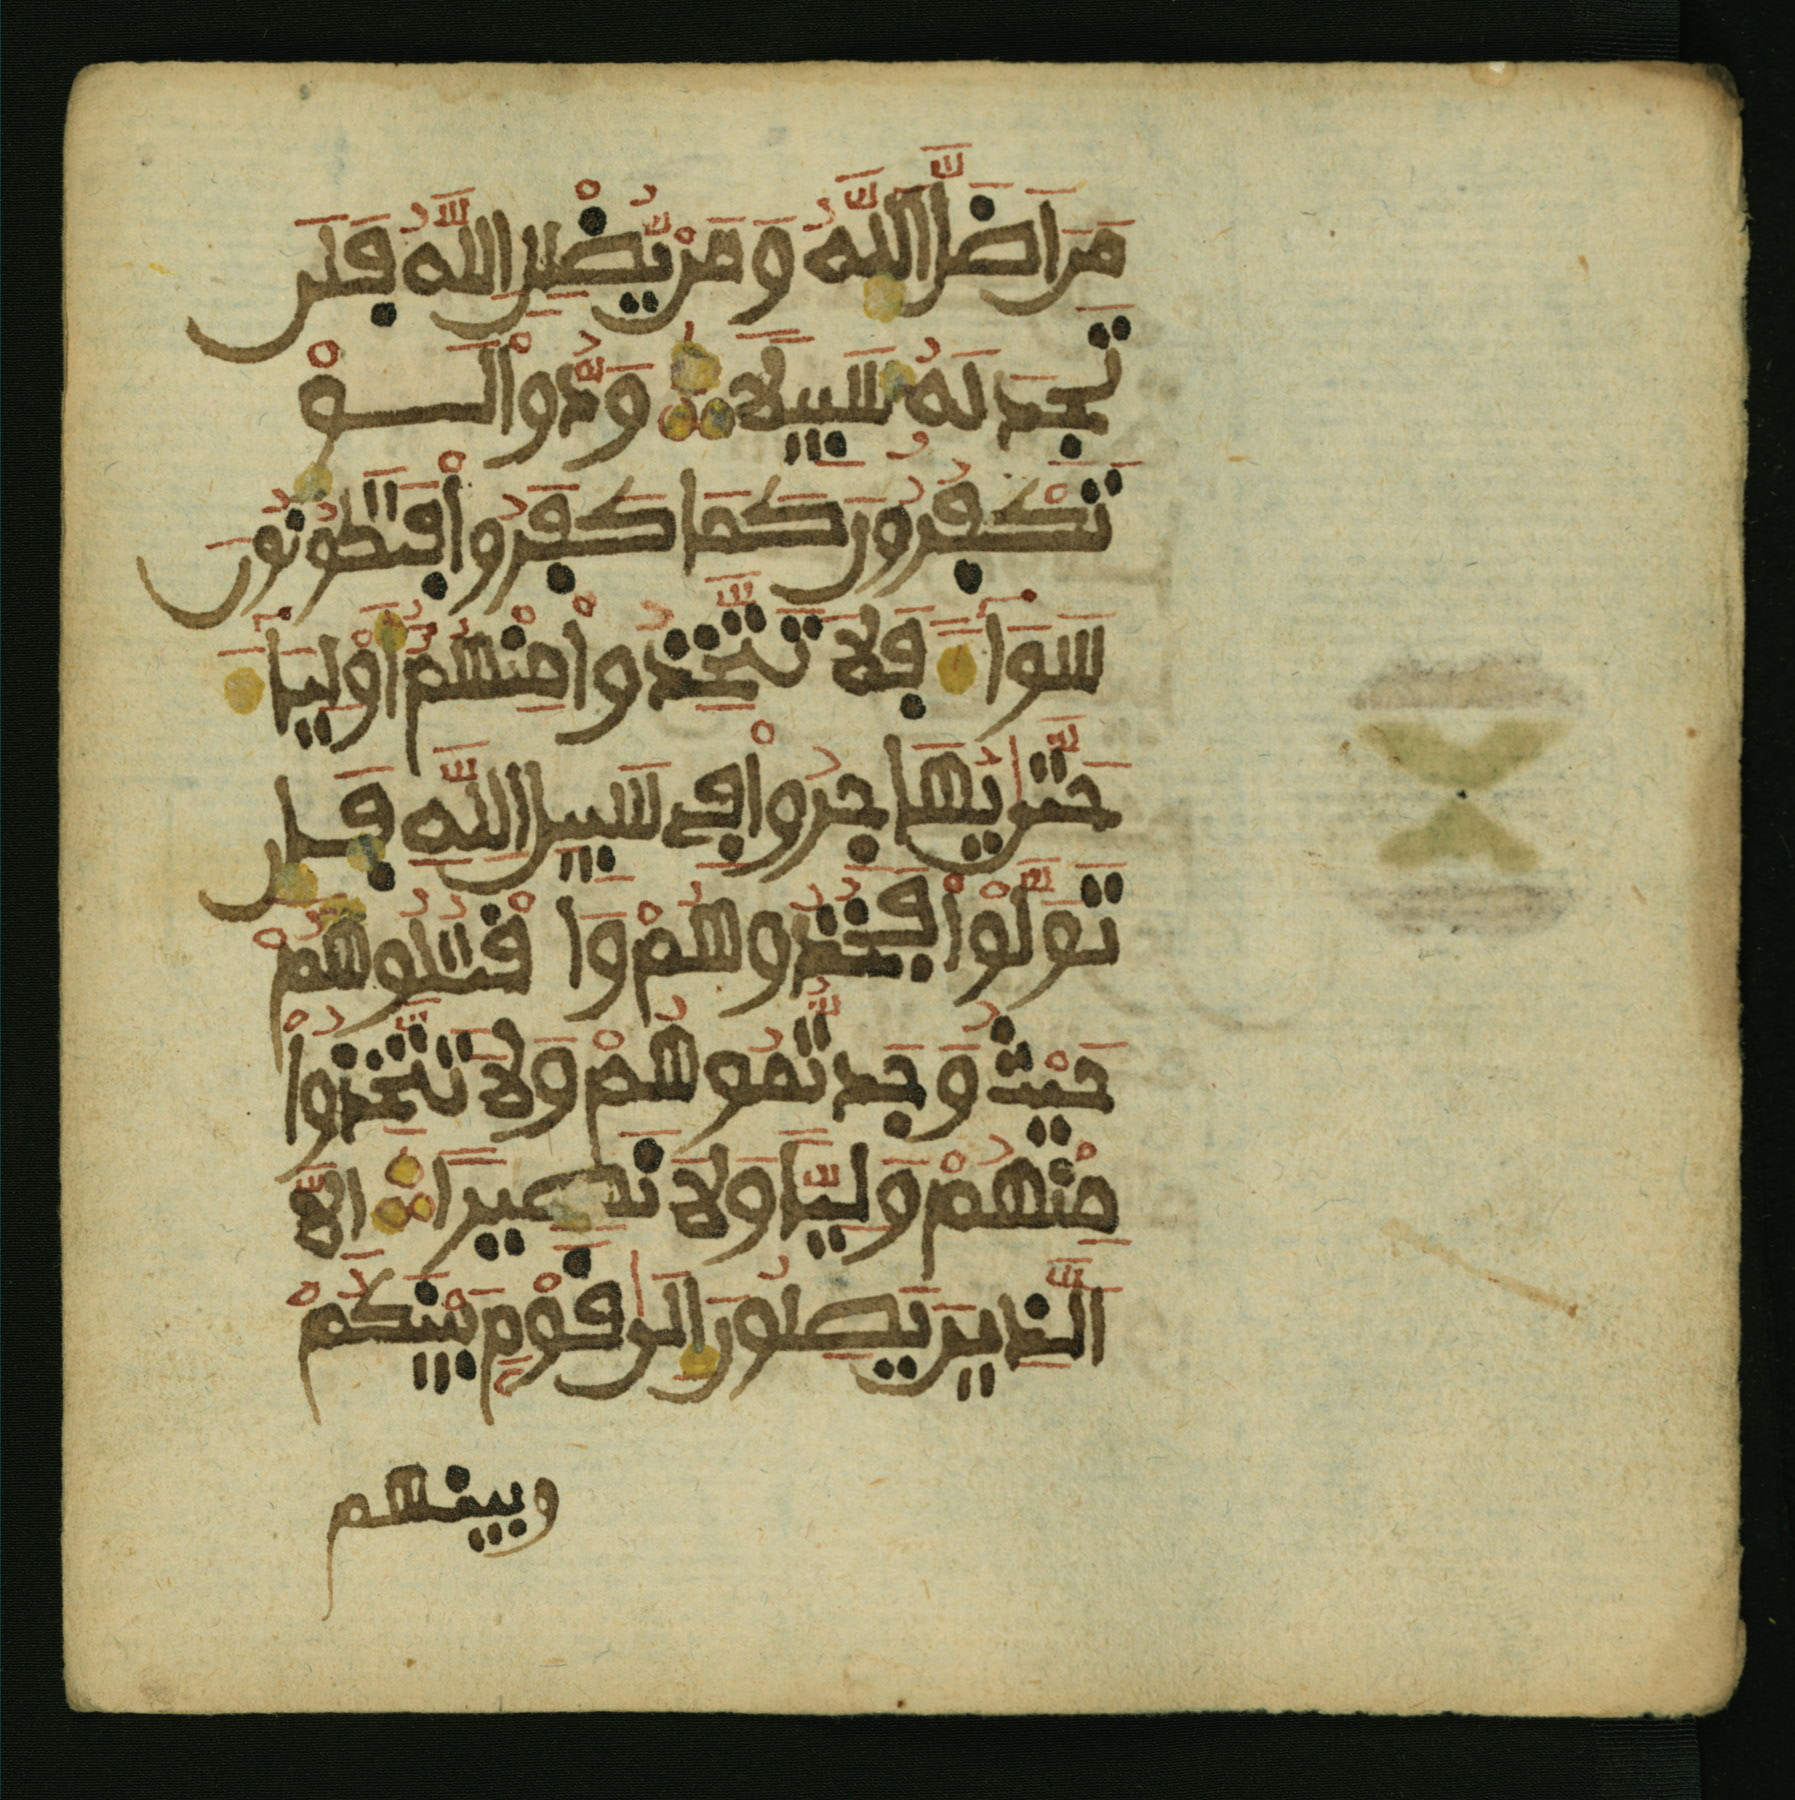 مَنَ اَضَلَّ اَللَّهُ وَمَنْ يُّضْلِلِ اللَّهُ فَلَن
تَجِدَ لَهُ سَبِيلاً وَدُّواْ لَوْ
تَكْفُرُونَ كَمَا كَفَرُواْ فَتَكُونُونَ
سَوَآءً فَلاَ تَتَّخِذُواْ مِنْهُمُ أَوْلِيَآءَ
حَتَّى يُهَاجِرُواْ فِے سَبِيلِ اللَّهِ فَإِن
تَوَلَّوْاْ فَخُذُوهُمْ وَاقْتُلُوهُمْ
حَيْثُ وَجَدتُّمُوهُمْ وَلاَ تَتَّخِذُواْ
مِنْهُمْ وَلِيّاً وَلاَ نَصِيراً اِلاَّ
اَلَّذِينَ يَصِلُونَ إِلَى قَوْمٍ بَيْنَكُمْ
وبينهم